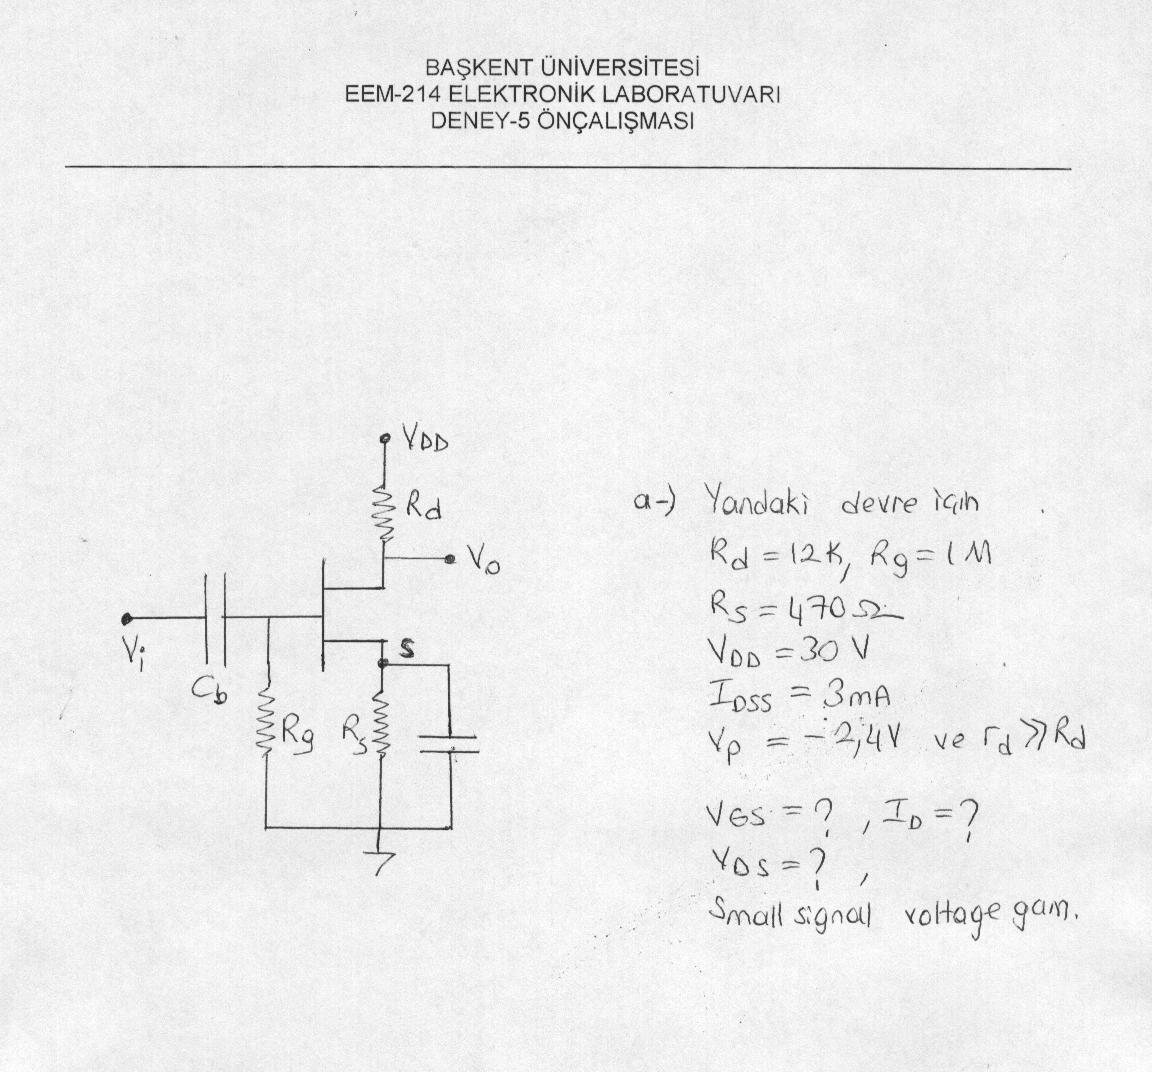 BAŞKENT ÜNİVERSİTESİ
EEM-214 ELEKTRONİK LABORATUVARI
DENEY-5 ÖNÇALIŞMASI
VDD
Rd
Vo
Vi
Cb
S
Rg
Rs
a-) Yandaki devre için
Rd = 12K, Rg = 1M
Rs = 470Ω
VDD = 30 V
IDSS = 3mA
Vp = -2,4V ve rd >> Rd
VGS = ? , ID = ?
VDS = ? ,
Small signal voltage gain.